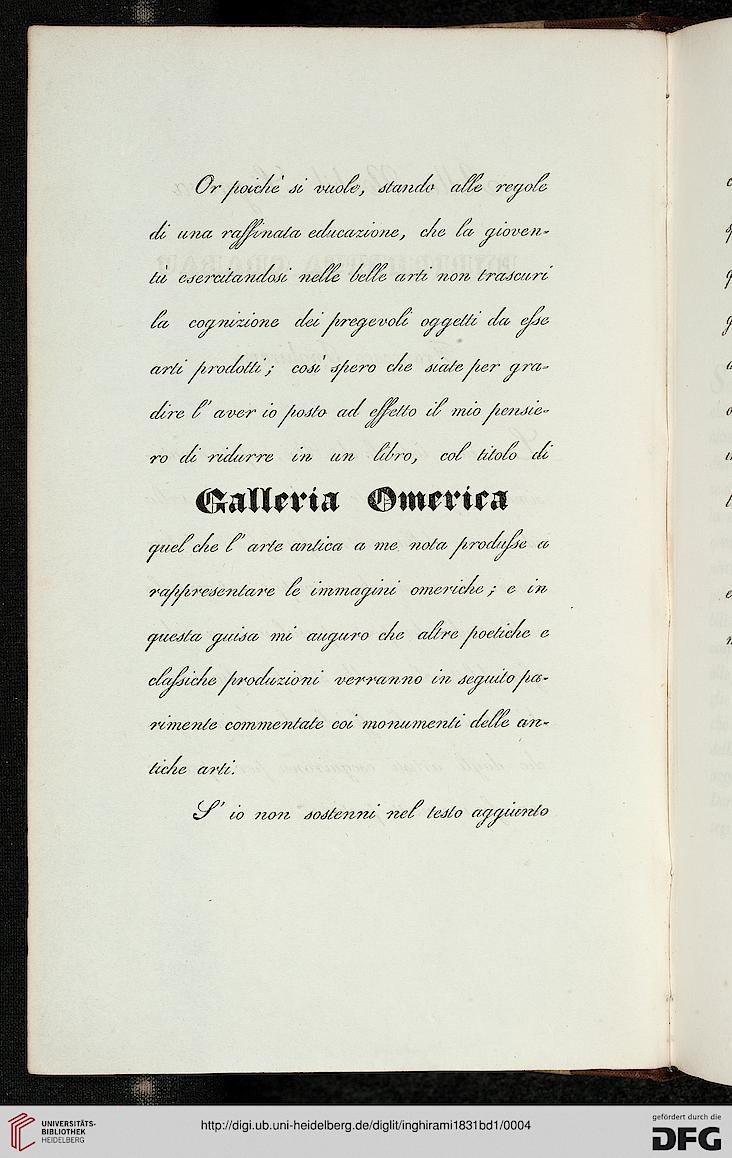 Or poichè si vuole, stando alle regole
di una raffinata educazione, che la gioven-
tù esercitandosi nelle belle arti non trascuri
la cognizione dei pregevoli oggetti da eſse
arti prodotti; così spero che siate per gra-
dire l' aver io posto ad effetto il mio pensie-
ro di ridurre in un libro, col titolo di
Galleria Omerica
quel che l' arte antica a me nota produſse a
rappresentare le immagini omeriche; e in
questa guisa mi auguro che altre poetiche e
claſsiche produzioni verranno in seguito pa-
rimente commentate coi monumenti delle an-
tiche arti.
S' io non sostenni nel testo aggiunto
UNIVERSITÄTS-
BIBLIOTHEK
HEIDELBERG
http://digi.ub.uni-heidelberg.de/diglit/inghirami1831bd1/0004
gefördert durch die
DFG